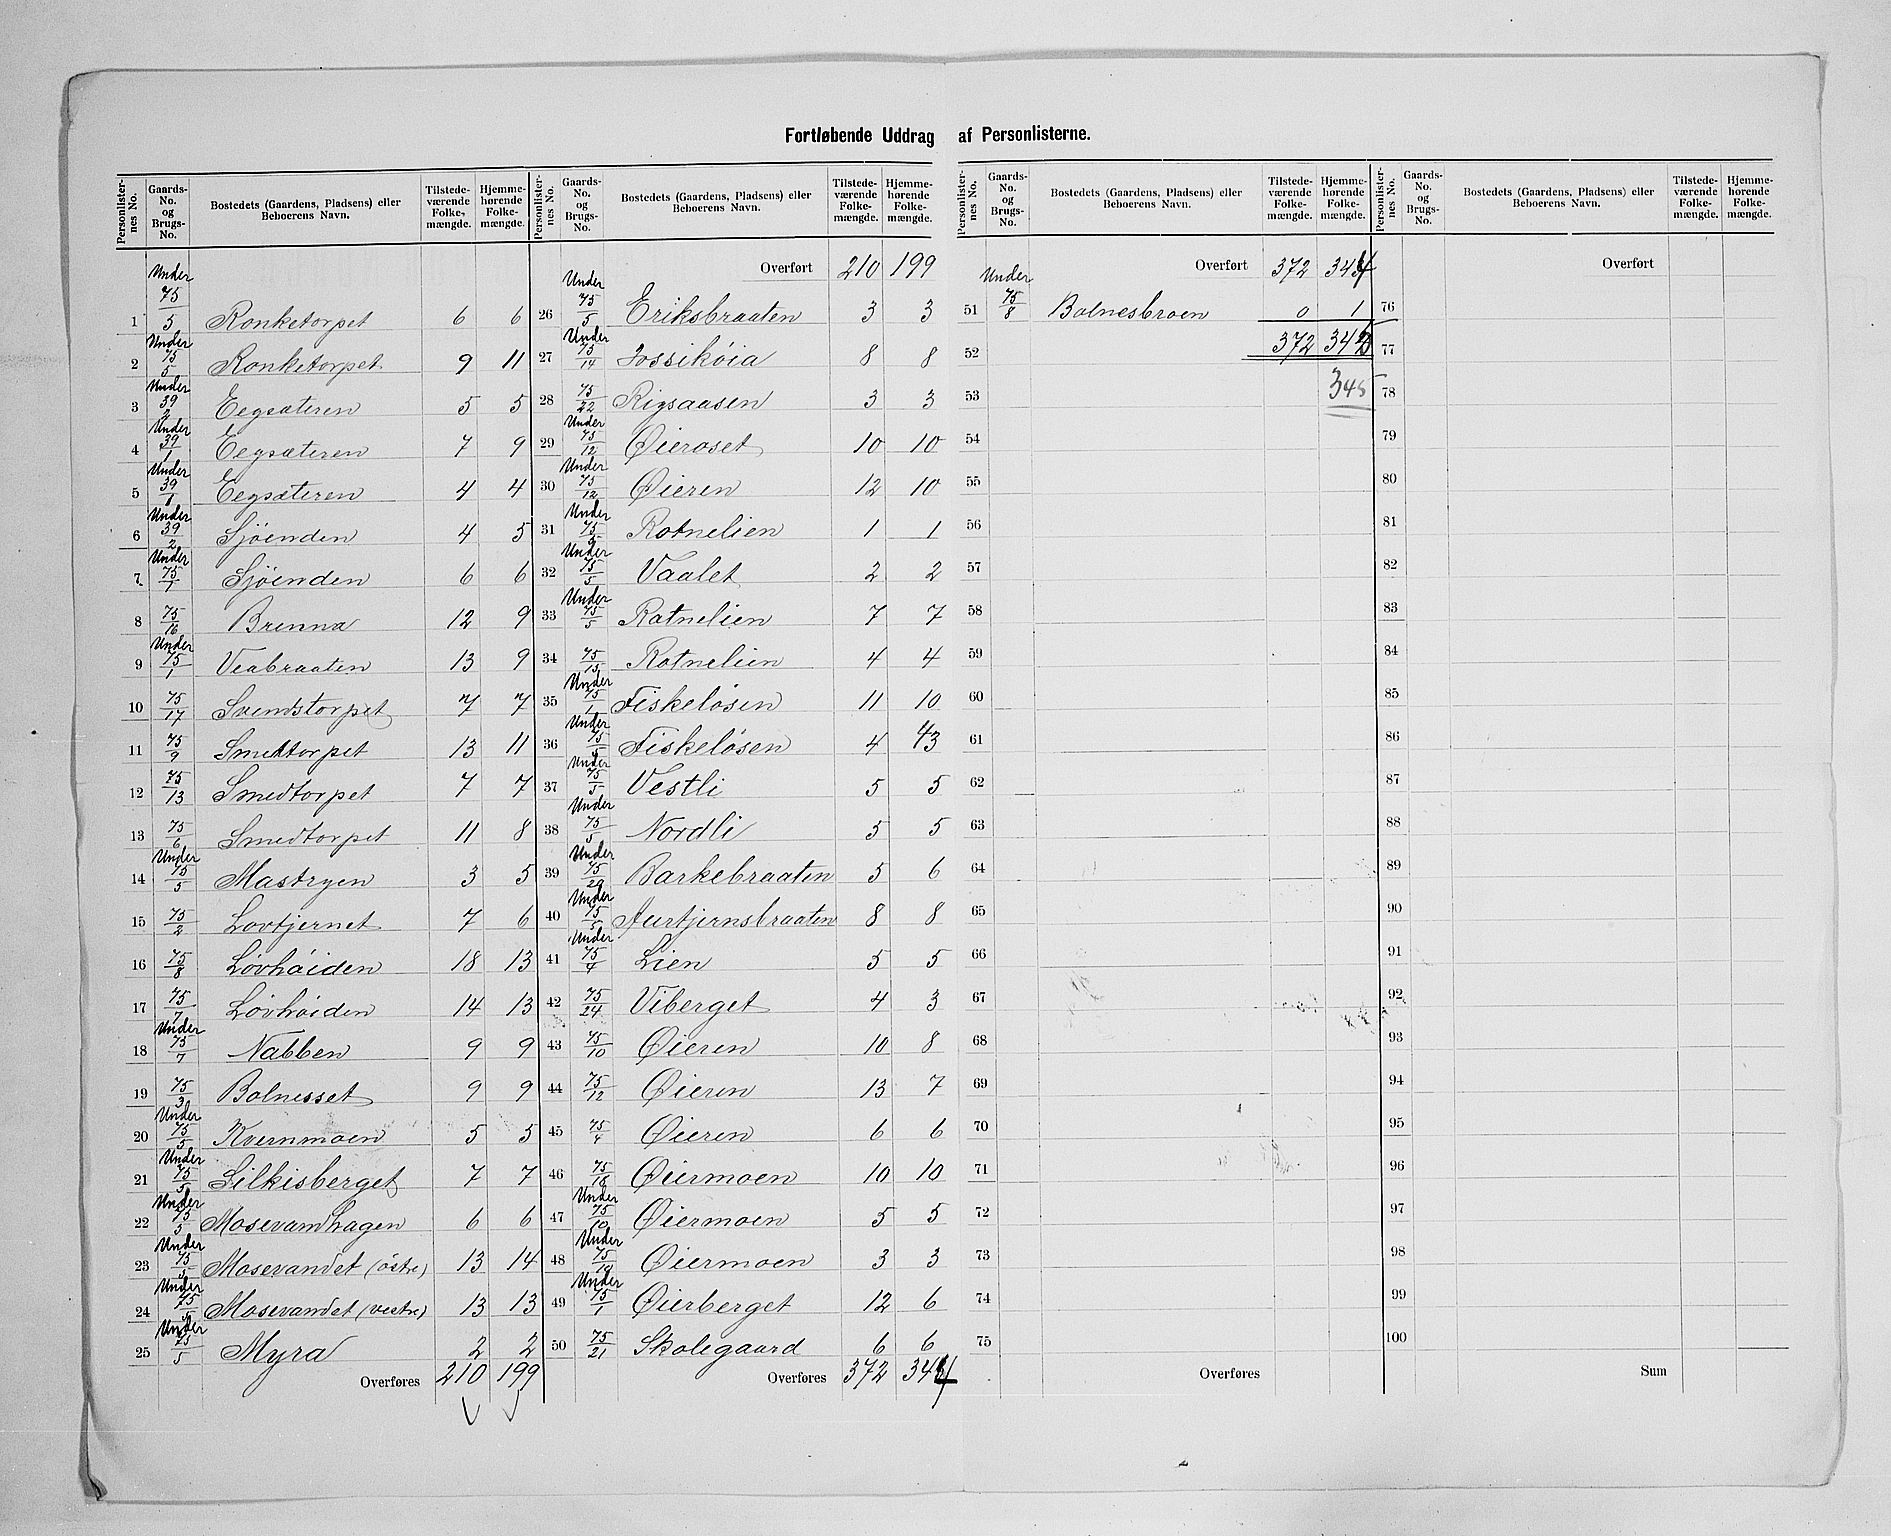 Fortløbende Uddrag af Personlisterne.
Personlister-nes No. | Gaards-No. og Brugs-No. | Bostedets (Gaardens, Pladsens) eller Beboerens Navn. | Tilstede-værende Folke-mængde. | Hjemme-hørende Folke-mængde.
1 | Under 75/5 | Ronketorpet | 6 | 6
2 | Under 75/5 | Ronketorpet | 9 | 11
3 | Under 39/2 | Eegsæteren | 5 | 5
4 | Under 39/1 | Eegsæteren | 7 | 9
5 | Under 39/1 | Eegsæteren | 4 | 4
6 | Under 39/2 | Sjøenden | 4 | 5
7 | Under 75/1 | Sjøenden | 6 | 6
8 | 75/16 | Brenna | 12 | 9
9 | Under 75/1 | Veabraaten | 13 | 9
10 | 75/17 | Svendstorpet | 7 | 7
11 | 75/9 | Smedtorpet | 13 | 11
12 | 75/13 | Smedtorpet | 7 | 7
13 | 75/6 | Smedtorpet | 11 | 8
14 | Under 75/5 | Mastryen | 3 | 5
15 | 75/2 | Lovtjernet | 7 | 6
16 | 75/8 | Løvhøiden | 18 | 13
17 | 75/7 | Løvhøiden | 14 | 13
18 | Under 75/7 | Nabben | 9 | 9
19 | 75/3 | Bolnesset | 9 | 9
20 | Under 75/5 | Kvernmoen | 5 | 5
21 | Under 75/5 | Silkisberget | 7 | 7
22 | Under 75/5 | Mosevandhagen | 6 | 6
23 | Under 75/5 | Mosevandet (östre) | 13 | 14
24 | Under 75/5 | Mosevandet (vestre) | 13 | 13
25 | Under 75/5 | Myra | 2 | 2
Overføres | 210 | 199
Personlister-nes No. | Gaards-No. og Brugs-No. | Bostedets (Gaardens, Pladsens) eller Beboerens Navn. | Tilstede-værende Folke-mængde. | Hjemme-hørende Folke-mængde.
Overført | 210 | 199
26 | Under 75/5 | Eriksbraaten | 3 | 3
27 | Under 75/14 | Jossikøia | 8 | 8
28 | 75/22 | Rigsaasen | 3 | 3
29 | Under 75/12 | Øieroset | 10 | 10
30 | Under 75/12 | Øieren | 12 | 10
31 | Under 75 | Rotnelien | 1 | 1
32 | Under 75/5 | Vaalet | 2 | 2
33 | Under 75/5 | Rotnelien | 7 | 7
34 | 75/15 | Rotnelien | 4 | 4
35 | Under 75/1 | Fiskeløsen | 11 | 10
36 | Under 75/5 | Fiskeløsen | 4 | 3
37 | Under 75/5 | Vestli | 5 | 5
38 | Under 75/5 | Nordli | 5 | 5
39 | Under 75/20 | Barkebraaten | 5 | 6
40 | Under 75/5 | Aurtjernsbraaten | 8 | 8
41 | Under 75/4 | Lien | 5 | 5
42 | 75/24 | Viberget | 4 | 3
43 | 75/10 | Øieren | 10 | 8
44 | 75/12 | Øieren | 13 | 7
45 | 75/4 | Øieren | 6 | 6
46 | 75/18 | Øiermoen | 10 | 10
47 | Under 75/10 | Øiermoen | 5 | 5
48 | Under 75/19 | Øiermoen | 3 | 3
49 | Under 75/1 | Øierberget | 12 | 6
50 | 75/21 | Skolegaard | 6 | 6
Overføres | 372 | 344
Personlister-nes No. | Gaards-No. og Brugs-No. | Bostedets (Gaardens, Pladsens) eller Beboerens Navn. | Tilstede-værende Folke-mængde. | Hjemme-hørende Folke-mængde.
Overført | 372 | 344
51 | Under 75/8 | Bolnesbroen | 0 | 1
52 | 372 | 345
53 | 345
54
55
56
57
58
59
60
61
62
63
64
65
66
67
68
69
70
71
72
73
74
75
Overføres
Personlister-nes No. | Gaards-No. og Brugs-No. | Bostedets (Gaardens, Pladsens) eller Beboerens Navn. | Tilstede-værende Folke-mængde. | Hjemme-hørende Folke-mængde.
Overført
76
77
78
79
80
81
82
83
84
85
86
87
88
89
90
91
92
93
94
95
96
97
98
99
100
Sum